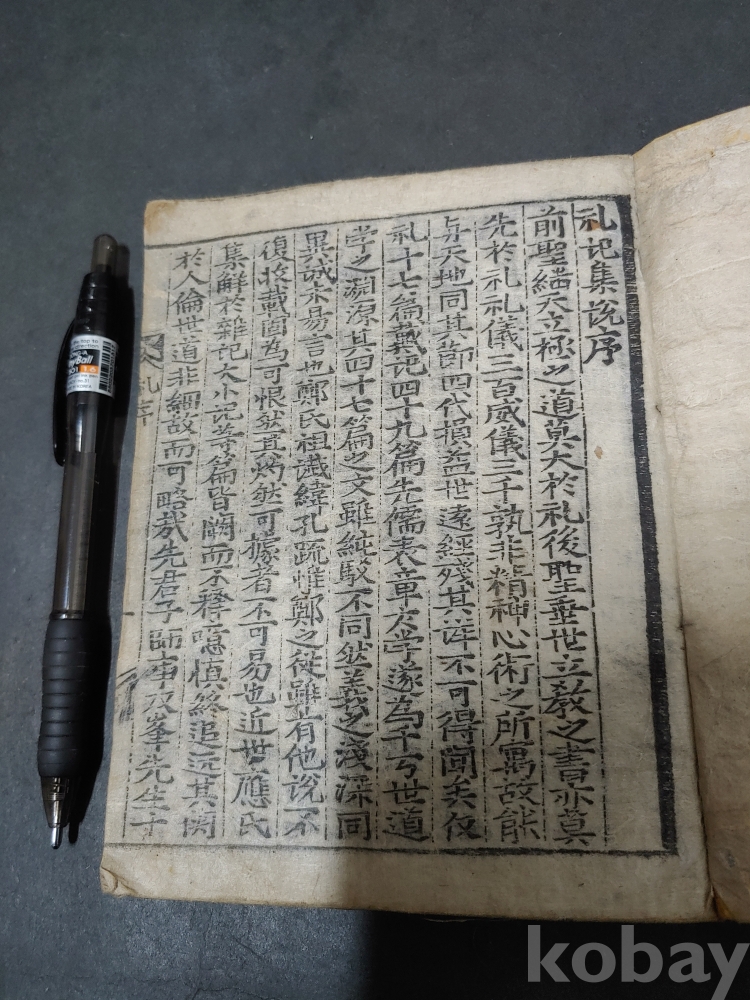 礼记集说序
前聖繼天立極之道莫大於礼後聖垂世立教之書亦莫
先於礼礼儀三百威儀三千孰非精神心術之所寓故能
与天地同其節四代損益世遠經殘其详不可得聞矣仅
礼十七篇戴记四十九篇先儒表章大学遂為千万世道
学之淵源其四十七篇之文雖純駁不同然義之淺深同
異誠未易言也鄭氏祖讖緯孔疏惟鄭之從雖有他说不
復收載固為可恨然其灼然可據者不可易也近世應氏
集解於雜记大小记等篇皆闕而不釋噫慎終追远其関
於人倫世道非細故而可略哉先君子師事双峯先生十
礼序
kobay